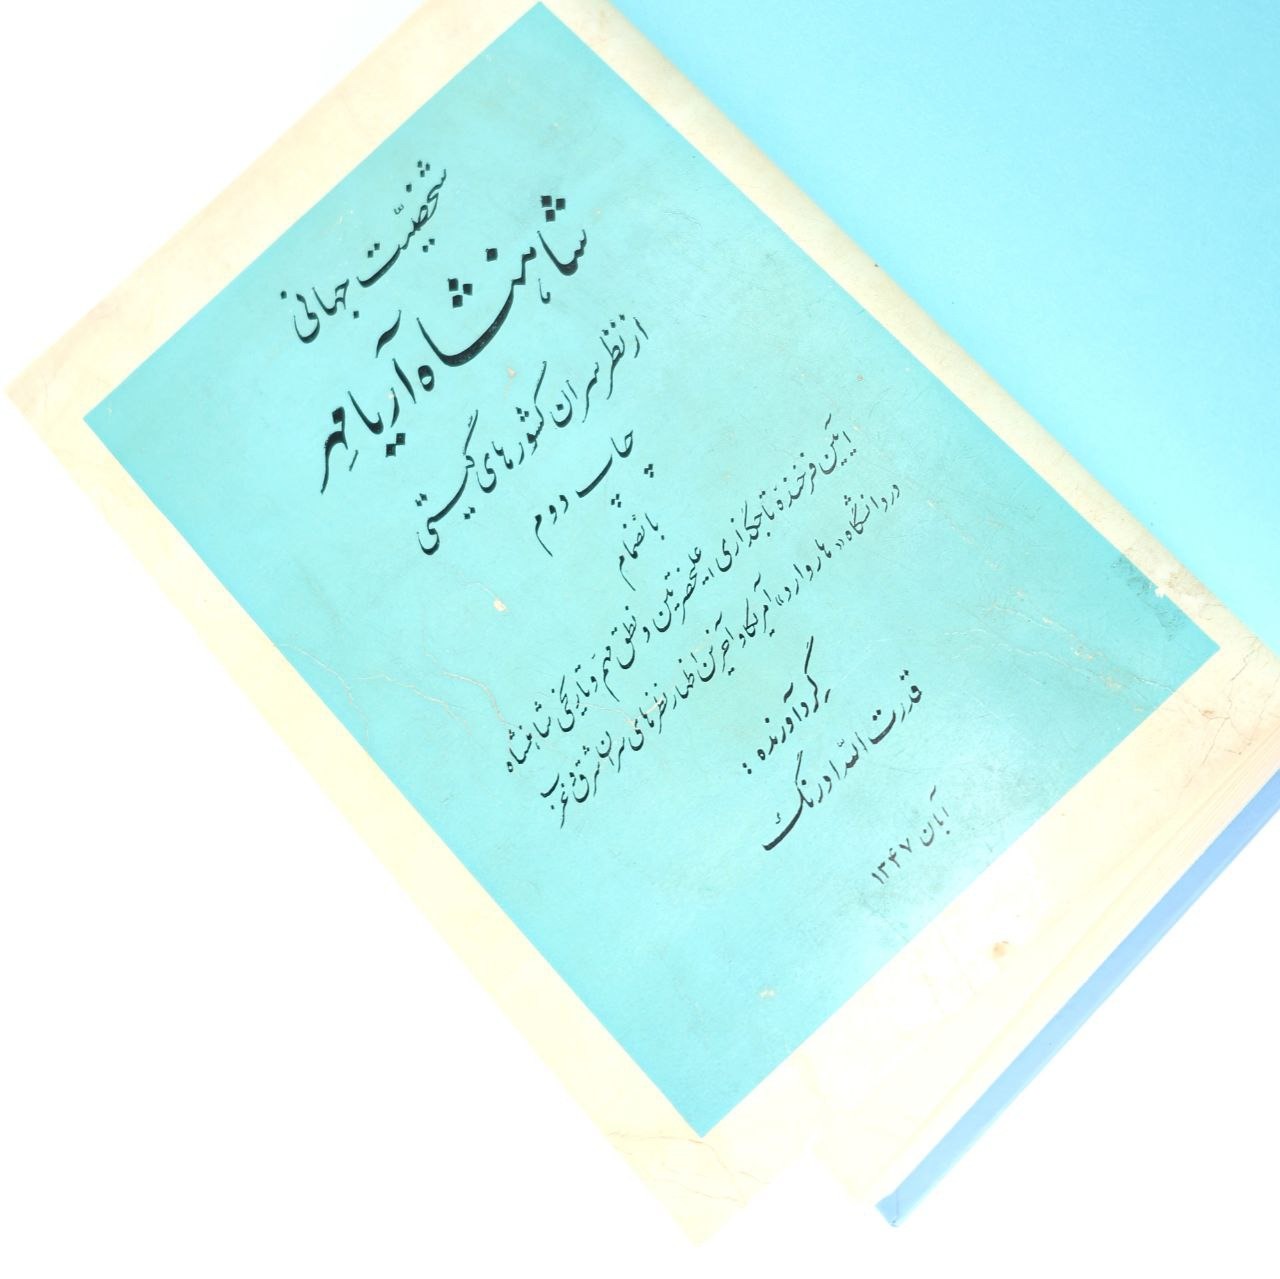 شخصیّت جهانی
شاهنشاه آریامهر
از نظر سران کشورهای گیتی
چاپ دوم
بانضمام
آیین فرخنده تاجگذاری اعلیحضرتین و نطق مهم و تاریخی شاهنشاه
در دانشگاه «هاروارد» آمریکا و آخرین اظهار نظرهای سران شرق و غرب
گردآورنده :
قدرت الله اورنگ
آبان ۱۳۴۷